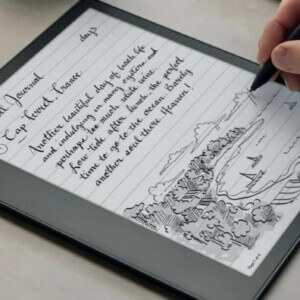 days
Journal
Cap Ferret, France
Another beautiful day of beach life
and indulging in many oysters and
perhaps too much white wine.
Low Tide after lunch, the perfect
time to go to the ocean. Barely
another soul there. Heaven!